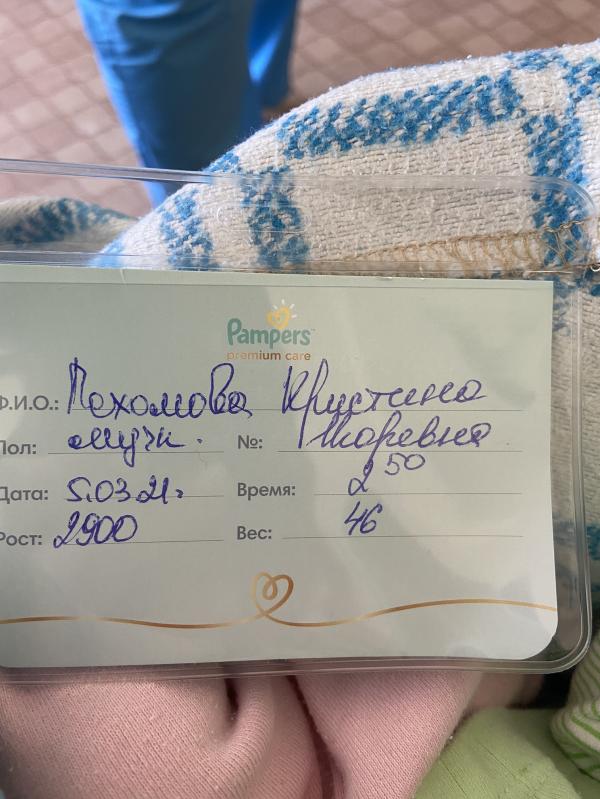 Pampers
premium care
Ф.И.О.: Пахомова Кристина
Пол: муж. №: Игоревна
Дата: 5.03.21г Время: 2 50
Рост: 2900 Вес: 46